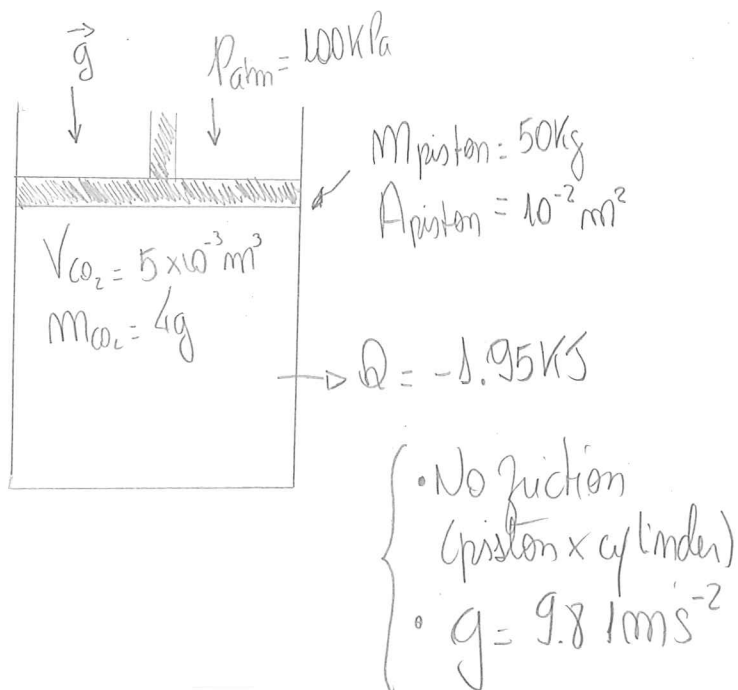 g⃗
Patm = 100KPa
Mpiston = 50Kg
Apiston = 10⁻² m²
VCO₂ = 5×10⁻³ m³
mCO₂ = 4g
Q = -1.95KJ
• No friction
(piston x cylinder)
• g = 9.81ms⁻²